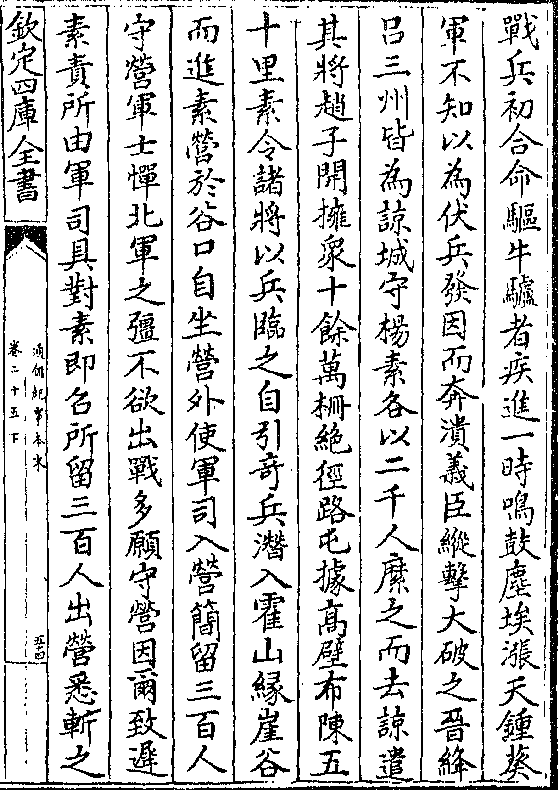 戰兵初合命驅牛驢者疾進一時鳴鼓塵埃漲天鍾葵
軍不知以為伏兵發因而奔潰義臣縱擊大破之晉絳
吕三州皆為諒城守楊素各以二千人縻之而去諒遣
其將趙子開擁衆十餘萬栅絶徑路屯據髙壁布陳五
十里素令諸將以兵臨之自引竒兵潛入霍山縁崖谷
而進素營於谷口自坐營外使軍司入營簡留三百人
守營軍士憚北軍之彊不欲出戰多願守營因爾致遲
素責所由軍司具對素即召所留三百人出營悉斬之
欽定四庫全書
通鑑紀事本末
卷二十五下
五十四